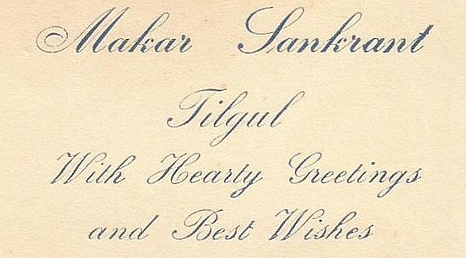 Makar Sankrant
Tilgul
With Hearty Greetings
and Best Wishes